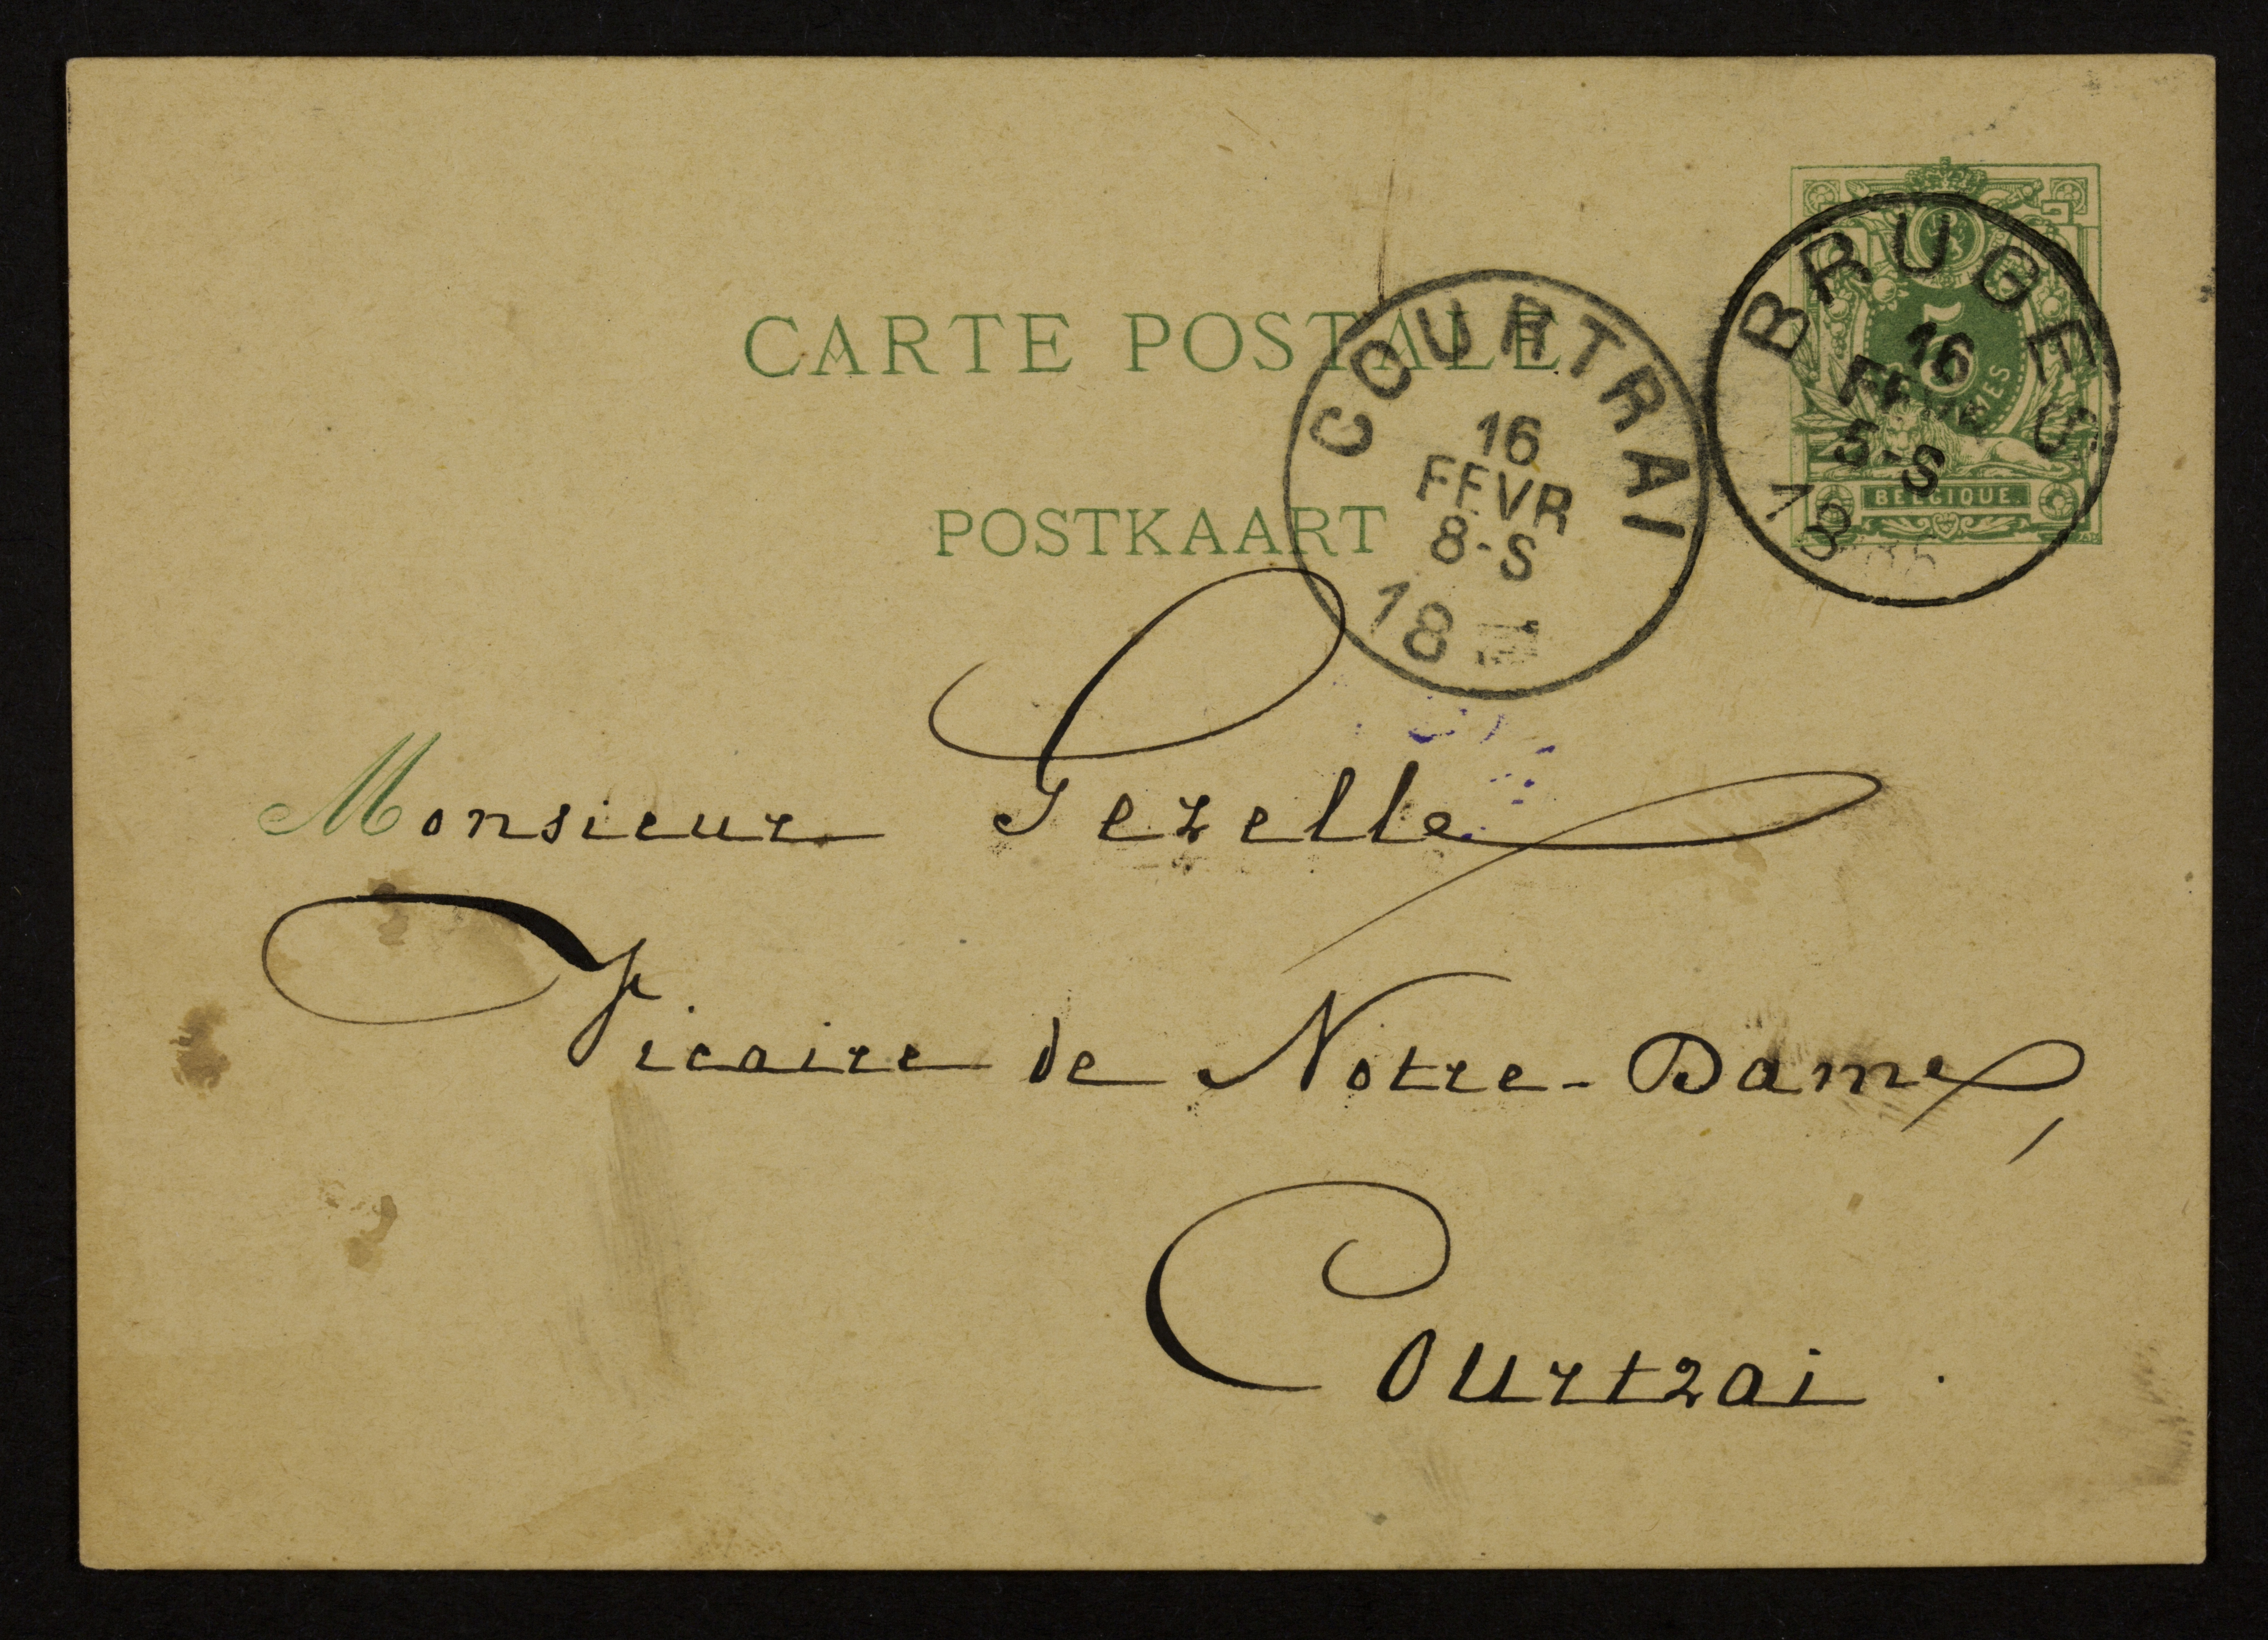 CARTE POSTALE
POSTKAART
COURTRAI
16
FEVR
8-S
18
BRUGES
16
FEVR
5-S
18
5
BELGIQUE
Monsieur Gezelle
Vicaire de Notre-Dame,
Courtrai.